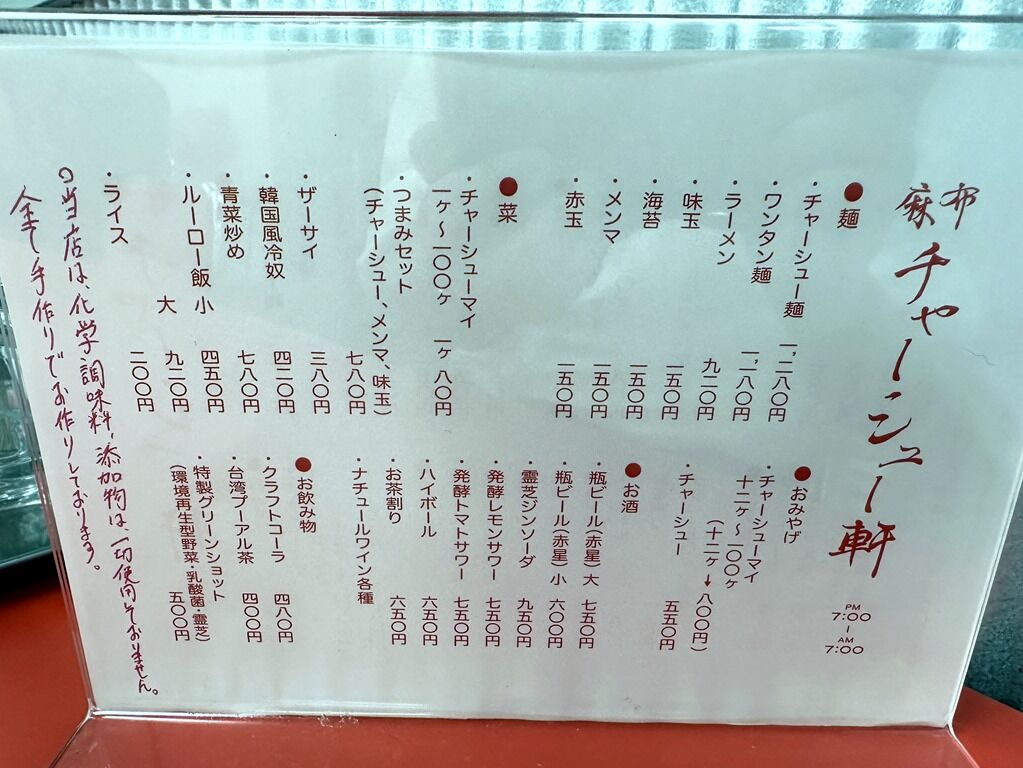 麻布
チャーシュー軒
PM
7:00
|
AM
7:00
●麺
・チャーシュー麺 一、二八〇円
・ワンタン麺 一、一八〇円
・ラーメン 九二〇円
・味玉 一五〇円
・海苔 一五〇円
・メンマ 一五〇円
・赤玉 一五〇円
●菜
・チャーシューマイ
一ヶ〜一〇〇ヶ 一ヶ 八〇円
・つまみセット
(チャーシュー、メンマ、味玉)
七八〇円
・ザーサイ 三八〇円
・韓国風冷奴 四二〇円
・青菜炒め 七八〇円
・ルーロー飯 小 四五〇円
大 九二〇円
・ライス 二〇〇円
●おみやげ
・チャーシューマイ
十二ヶ〜一〇〇ヶ
(十二ヶ→八〇〇円)
・チャーシュー 五五〇円
●お酒
・瓶ビール(赤星)大 七五〇円
・瓶ビール(赤星)小 六〇〇円
・霊芝ジンソーダ 九五〇円
・発酵レモンサワー 七五〇円
・発酵トマトサワー 七五〇円
・ハイボール 六五〇円
・お茶割り 六五〇円
・ナチュールワイン各種
●お飲み物
・クラフトコーラ 四八〇円
・台湾プーアル茶 四〇〇円
・特製グリーンショット
(環境再生型野菜・乳酸菌・霊芝)
五〇〇円
○当店は、化学調味料、添加物は、一切使用しておりません。
全て手作りでお作りしております。